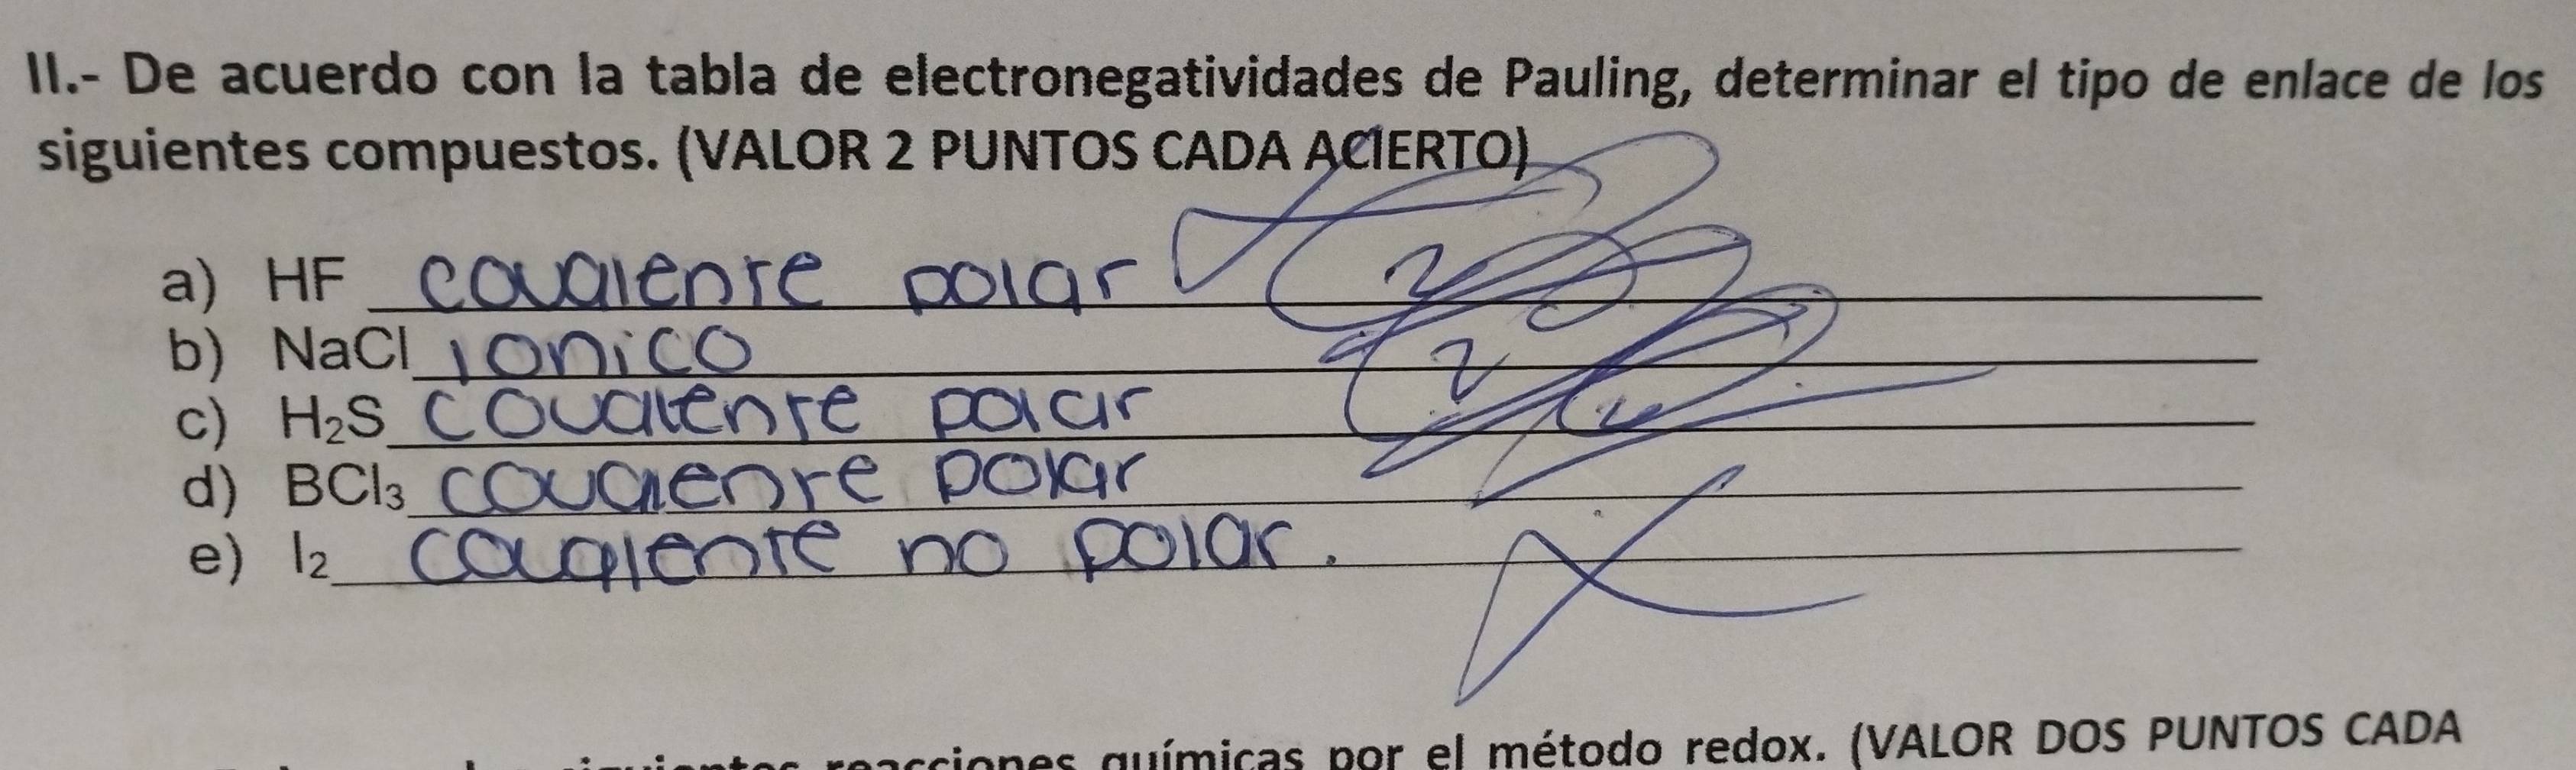 II.- De acuerdo con la tabla de electronegatividades de Pauling, determinar el tipo de enlace de los
siguientes compuestos. (VALOR 2 PUNTOS CADA ACIERTO)
a) HF covalente polar
b) NaCl ionico
c) H₂S covalente polar
d) BCl₃ covalente polar
e) I₂ covalente no polar.
reacciones químicas por el método redox. (VALOR DOS PUNTOS CADA